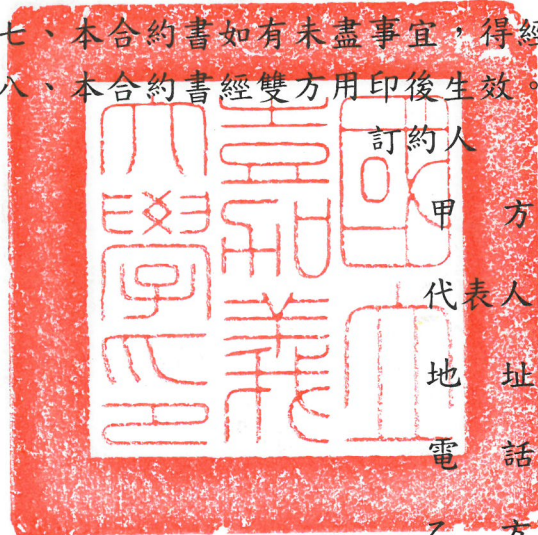 七、本合約書如有未盡事宜，得經
八、本合約書經雙方用印後生效。
訂約人
甲 方
代表人
地 址
電 話
乙 方
國立
嘉義
大學印